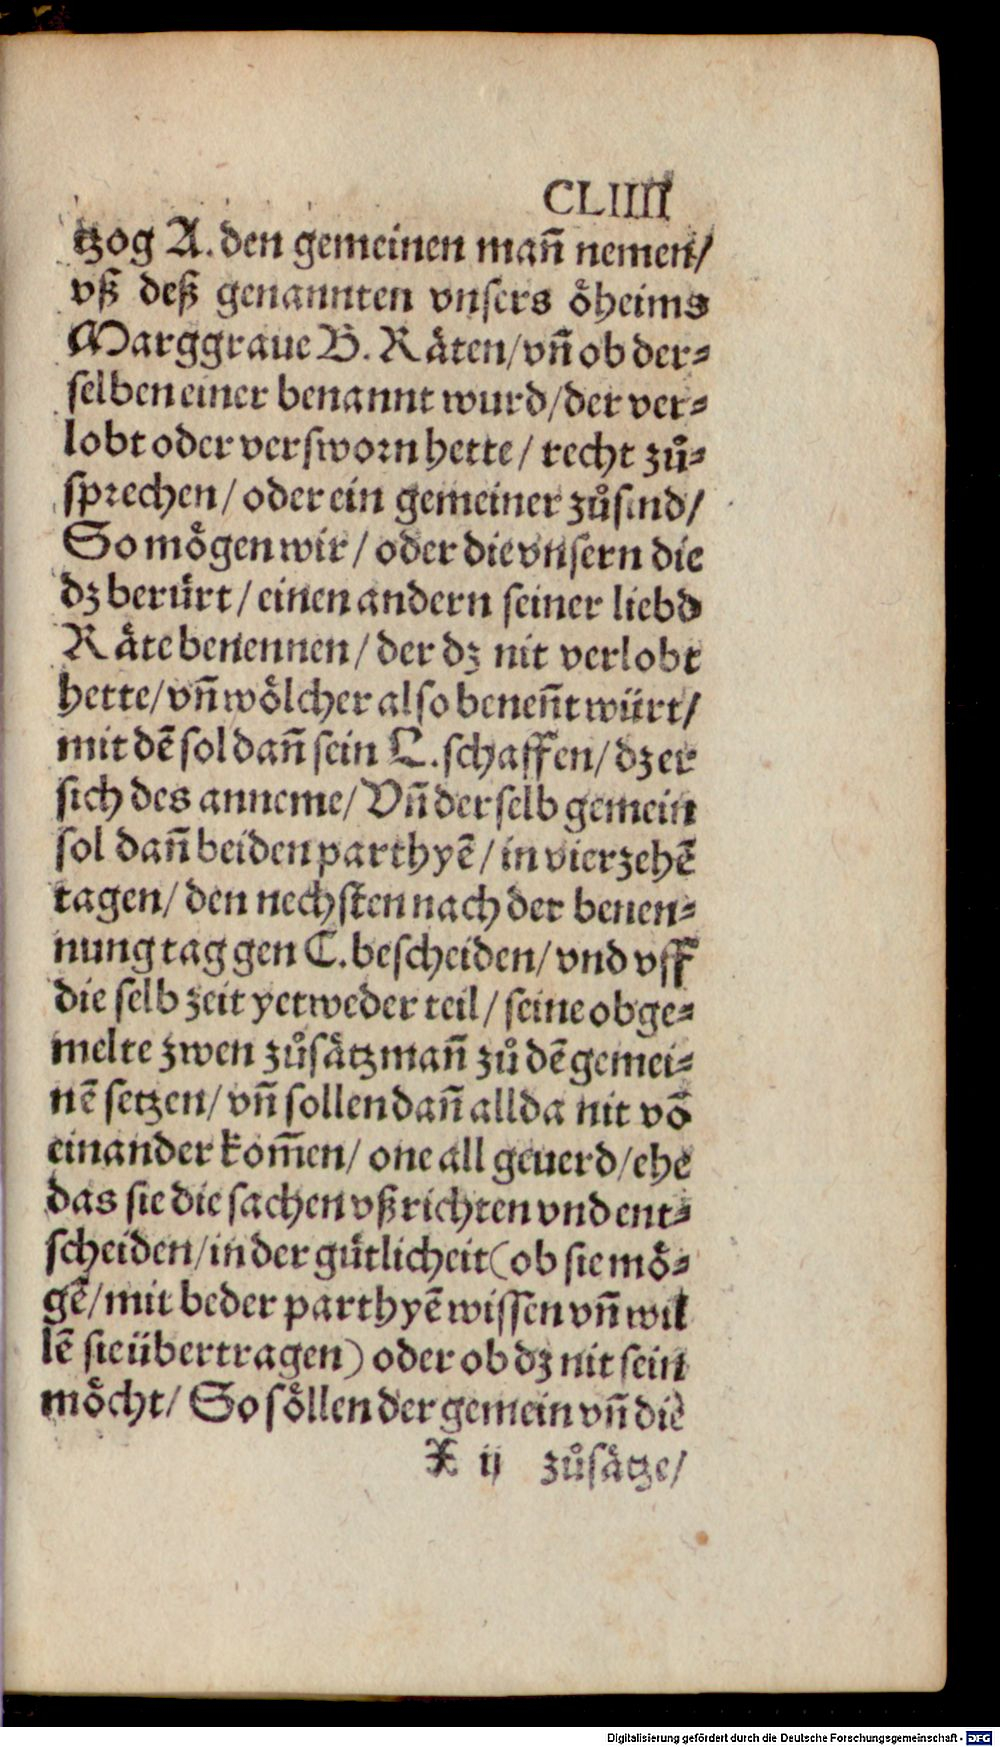 CLIIII
tzog A. den gemeinen man̄ nemen/
vß deß genannten vnsers oͤheims
Marggraue B. Raͤten/vn̄ ob der⸗
selben einer benannt wurd/der ver⸗
lobt oder versworn hette/ recht zuͦ⸗
sprechen/ oder ein gemeiner zuͦsind/
So moͤgen wir/ oder die vnsern die
dz beruͤrt/ einen andern seiner liebd
Raͤte benennen/ der dz nit verlobt
hette/vn̄ woͤlcher also benen̄t wuͤrt/
mit dē sol dan̄ sein L. schaffen/ dz er
sich des anneme/ Vn̄ der selb gemein
sol dan̄ beiden parthyē/ in vierzehē
tagen/ den nechsten nach der benen⸗
nung tag gen C. bescheiden/ vnd vff
die selb zeit yetweder teil/ seine obge⸗
melte zwen zuͦsaͤtzman̄ zuͦ dē gemei⸗
nē setzen/ vn̄ sollen dan̄ allda nit vō
einander kom̄en/ one all geuerd/ehe
das sie die sachen vßrichten vnd ent⸗
scheiden/in der guͤtlicheit(ob sie moͤ⸗
gē/mit beder parthyē wissen vn̄ wil
lē sie uͤbertragen) oder ob dz nit sein
moͤcht/ So soͤllen der gemein vn̄ die
X ij zuͦsaͤtze/
Digitalisierung gefördert durch die Deutsche Forschungsgemeinschaft - DFG